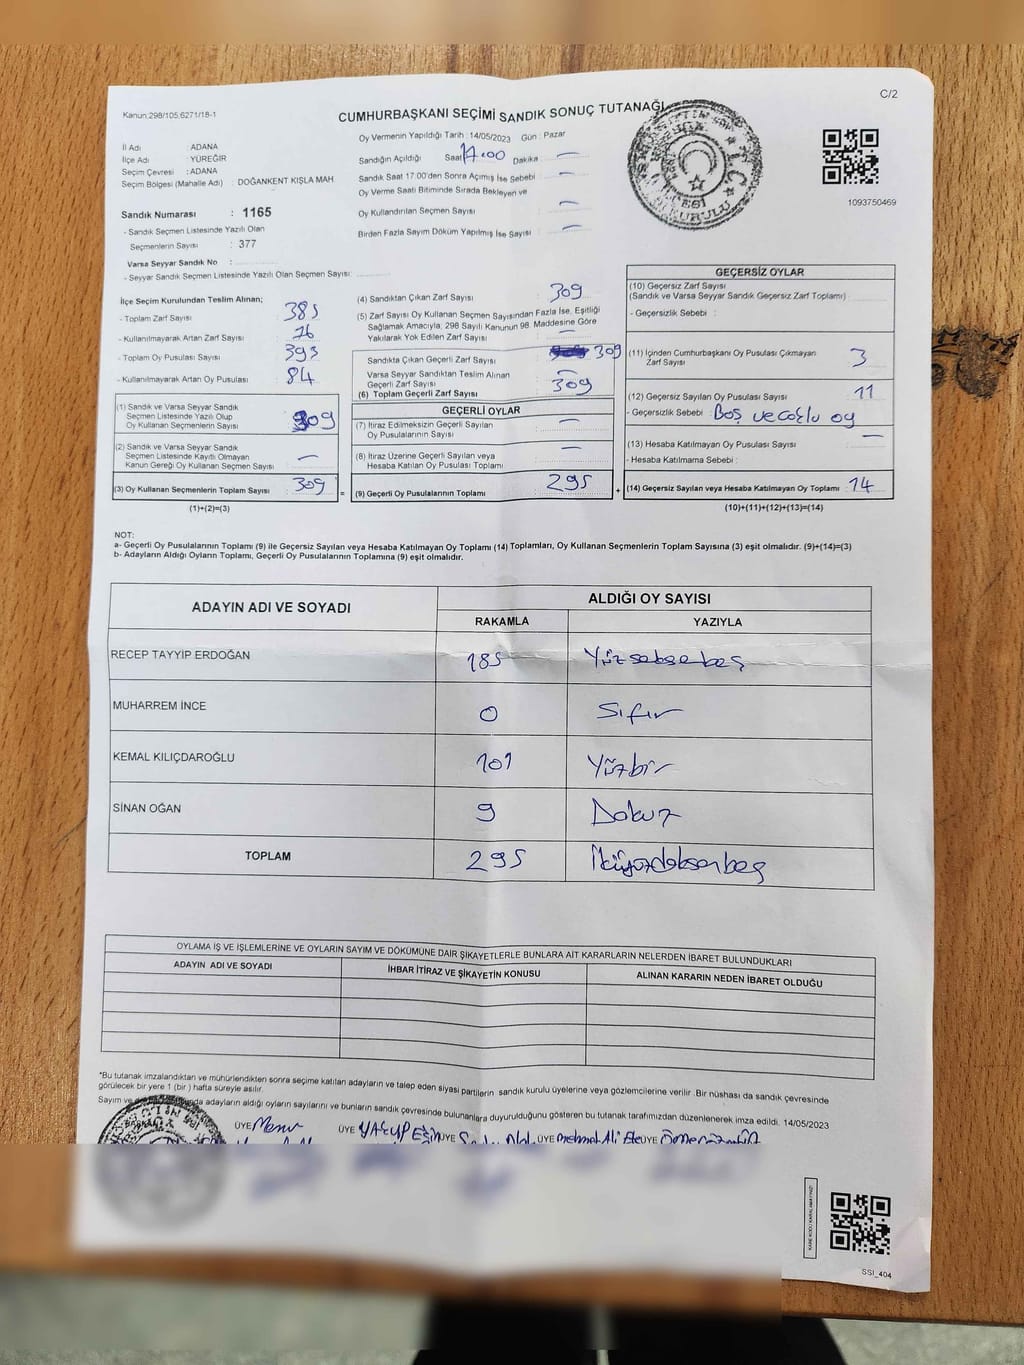 C/2
Kanun:298/105,6271/18-1
CUMHURBAŞKANI SEÇİMİ SANDIK SONUÇ TUTANAĞI
Oy Vermenin Yapıldığı Tarih : 14/05/2023 Gün : Pazar
İl Adı : ADANA
İlçe Adı : YÜREĞİR
Seçim Çevresi : ADANA
Seçim Bölgesi (Mahalle Adı) : DOĞANKENT KIŞLA MAH.
Sandığın Açıldığı Saat 17.00 Dakika : —
Sandık Saat 17.00'den Sonra Açımış İse Sebebi : —
Oy Verme Saati Bitiminde Sırada Bekleyen ve
Oy Kullandırılan Seçmen Sayısı : —
Birden Fazla Sayım Döküm Yapılmış İse Sayısı : —
1093750469
Sandık Numarası : 1165
- Sandık Seçmen Listesinde Yazılı Olan
Seçmenlerin Sayısı : 377
Varsa Seyyar Sandık No :
- Seyyar Sandık Seçmen Listesinde Yazılı Olan Seçmen Sayısı:
İlçe Seçim Kurulundan Teslim Alınan;
- Toplam Zarf Sayısı : 385
- Kullanılmayarak Artan Zarf Sayısı : 76
- Toplam Oy Pusulası Sayısı : 393
- Kullanılmayarak Artan Oy Pusulası : 84
(1) Sandık ve Varsa Seyyar Sandık
Seçmen Listesinde Yazılı Olup
Oy Kullanan Seçmenlerin Sayısı : 309
(2) Sandık ve Varsa Seyyar Sandık
Seçmen Listesinde Kayıtlı Olmayan
Kanun Gereği Oy Kullanan Seçmen Sayısı : —
(3) Oy Kullanan Seçmenlerin Toplam Sayısı : 309
(1)+(2)=(3)
=
(4) Sandıktan Çıkan Zarf Sayısı : 309
(5) Zarf Sayısı Oy Kullanan Seçmen Sayısından Fazla İse, Eşitliği
Sağlamak Amacıyla; 298 Sayılı Kanunun 98. Maddesine Göre
Yakılarak Yok Edilen Zarf Sayısı : —
Sandıkta Çıkan Geçerli Zarf Sayısı : 309
Varsa Seyyar Sandıktan Teslim Alınan
Geçerli Zarf Sayısı : —
(6) Toplam Geçerli Zarf Sayısı : 309
GEÇERLİ OYLAR
(7) İtiraz Edilmeksizin Geçerli Sayılan
Oy Pusulalarının Sayısı : —
(8) İtiraz Üzerine Geçerli Sayılan veya
Hesaba Katılan Oy Pusulası Toplamı : —
(9) Geçerli Oy Pusulalarının Toplamı : 295
+
GEÇERSİZ OYLAR
(10) Geçersiz Zarf Sayısı
(Sandık ve Varsa Seyyar Sandık Geçersiz Zarf Toplamı)
- Geçersizlik Sebebi :
(11) İçinden Cumhurbaşkanı Oy Pusulası Çıkmayan
Zarf Sayısı : 3
(12) Geçersiz Sayılan Oy Pusulası Sayısı : 11
- Geçersizlik Sebebi : Boş ve oy
(13) Hesaba Katılmayan Oy Pusulası Sayısı : —
- Hesaba Katılmama Sebebi :
(14) Geçersiz Sayılan veya Hesaba Katılmayan Oy Toplamı : 14
(10)+(11)+(12)+(13)=(14)
NOT:
a- Geçerli Oy Pusulalarının Toplamı (9) ile Geçersiz Sayılan veya Hesaba Katılmayan Oy Toplamı (14) Toplamları, Oy Kullanan Seçmenlerin Toplam Sayısına (3) eşit olmalıdır. (9)+(14)=(3)
b- Adayların Aldığı Oyların Toplamı, Geçerli Oy Pusulalarının Toplamına (9) eşit olmalıdır.
ADAYIN ADI VE SOYADI
ALDIĞI OY SAYISI
RAKAMLA YAZIYLA
RECEP TAYYİP ERDOĞAN 185 Yüzseksenbeş
MUHARREM İNCE 0 Sıfır
KEMAL KILIÇDAROĞLU 101 Yüzbir
SİNAN OĞAN 9 Dokuz
TOPLAM 295
OYLAMA İŞ VE İŞLEMLERİNE VE OYLARIN SAYIM VE DÖKÜMÜNE DAİR ŞİKAYETLERLE BUNLARA AİT KARARLARIN NELERDEN İBARET BULUNDUKLARI
ADAYIN ADI VE SOYADI İHBAR İTİRAZ VE ŞİKAYETİN KONUSU ALINAN KARARIN NEDEN İBARET OLDUĞU
*Bu tutanak imzalandıktan ve mühürlendikten sonra seçime katılan adayların ve talep eden siyasi partilerin sandık kurulu üyelerine veya gözlemcilerine verilir. Bir nüshası da sandık çevresinde
görülecek bir yere 1 (bir) hafta süreyle asılır.
Sayım ve adayların aldığı oyların sayılarını ve bunların sandık çevresinde bulunanlara duyurulduğunu gösteren bu tutanak tarafımızdan düzenlenerek imza edildi. 14/05/2023
ÜYE ÜYE YAKUP ÜYE ÜYE Mehmet Ali ÜYE
SSI_404